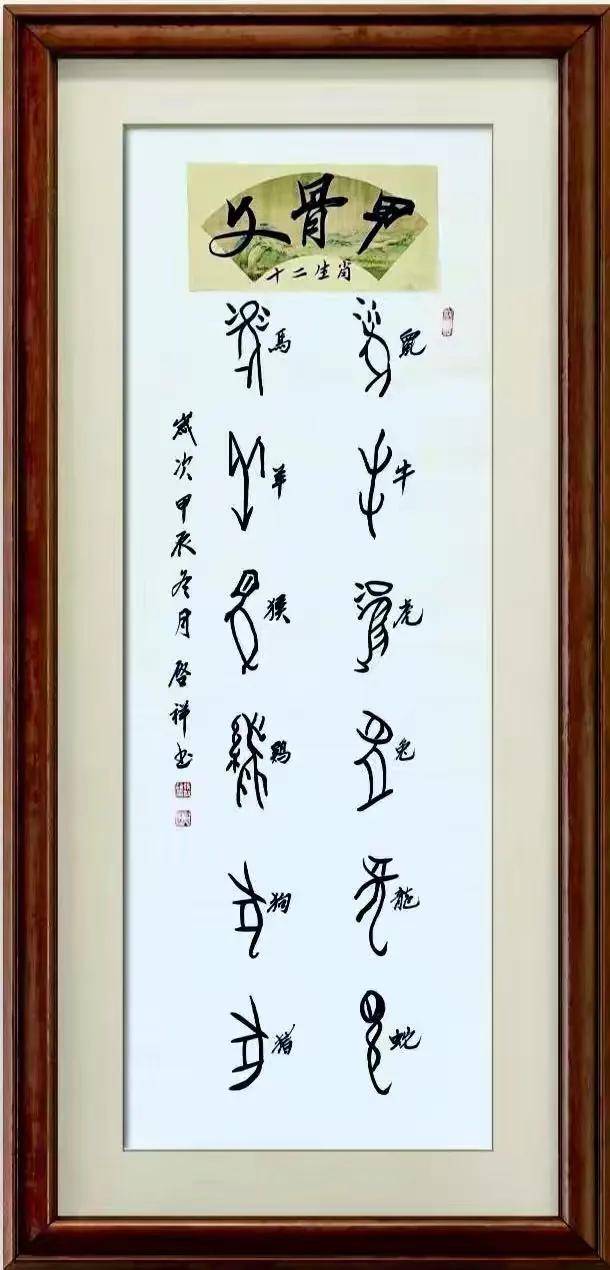 甲骨文
十二生肖
鼠
牛
虎
兔
龍
蛇
馬
羊
猴
鷄
狗
猪
歲次甲辰冬月啓祥书